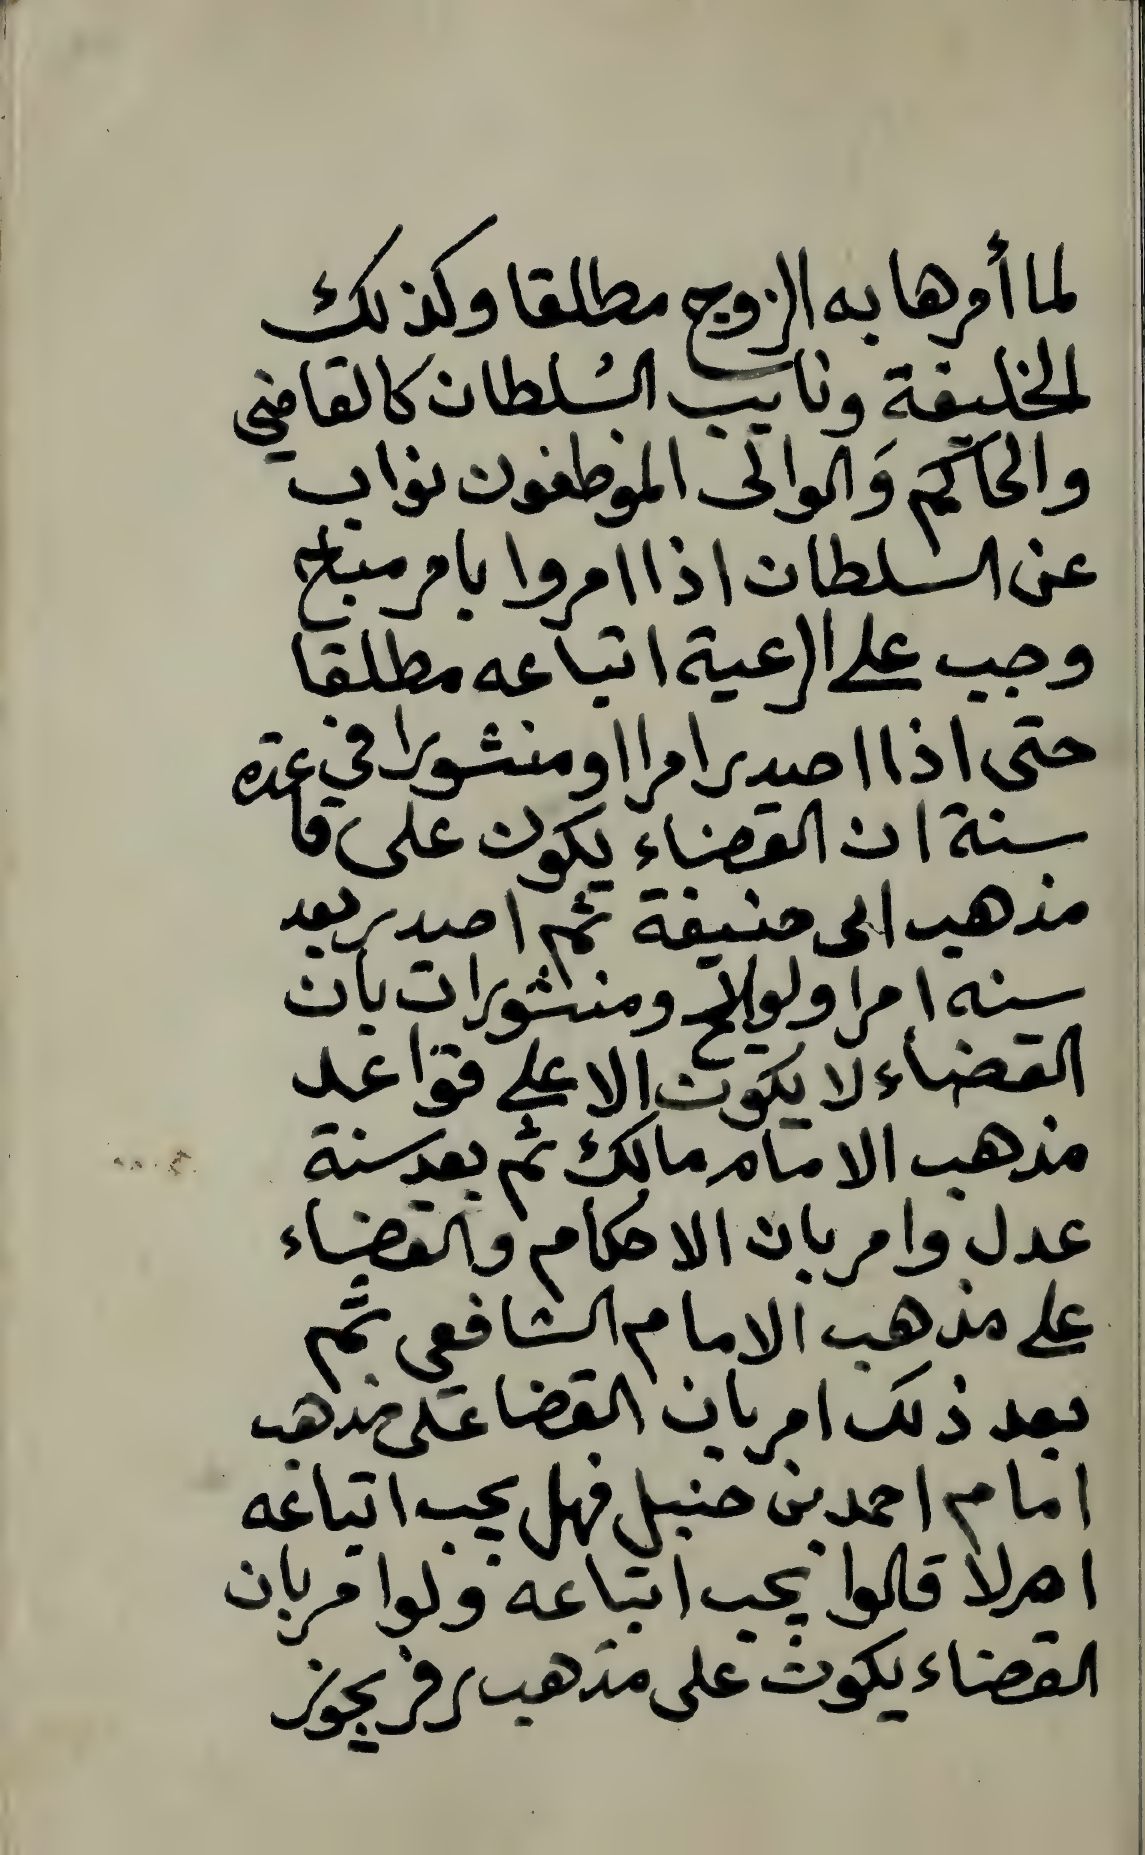 لما أمرها به الزوج مطلقا وكذلك
الخليفة ونايب السُلطان كالقاضي
والحاكم وَالوالى الموظفون نواب
عن السلطان اذا امروا بامر مباح
وجب على الرعية اتباعه مطلقا
حتى اذا اصدر امرا او منشورا في
سنة ان القضاء يكون على قاعدة
مذهب ابى حنيفة ثم اصدر بعد
سنه امرا ولوايح ومنشورات بان
القضاء لا يكون الا على قواعد
مذهب الامام مالك ثم بعد سنة
عدل وامر بان الاحكام والقضاء
على مذهب الامام الشافعى ثم
بعد ذلك امر بان القضا على مذهب
امام احمد بن حنبل فهل يجب اتباعه
ام لا قالوا يجب اتباعه ولو امر بان
القضاء يكون على مذهب زفر يجوز